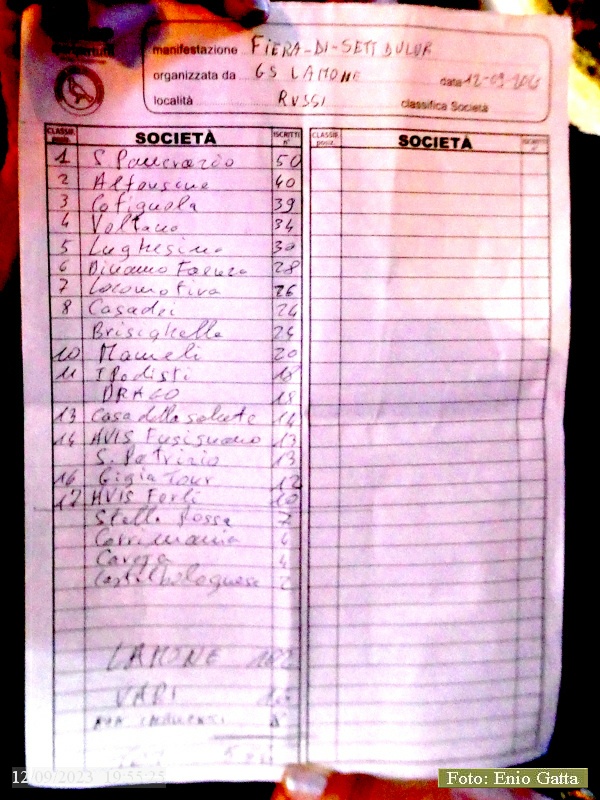 manifestazione FIERA-DI-SETT DULUR
organizzata da GS LAMONE data 12-09-2023
località RUSSI classifica Società
CLASSIF. SOCIETÀ ISCRITTI n° CLASSIF. posiz. SOCIETÀ
1 S. Pancrazio 50
2 Alfonsine 40
3 Cotignola 39
4 Voltana 34
5 Lughesina 30
6 Dinamo Faenza 28
7 Locomotiva 26
8 Casadei 24
Brisighella 24
10 Mameli 20
11 I Podisti 18
DRAGO 18
13 Casa della salute 14
14 AVIS Fusignano 13
S. Patrizio 13
16 Gigia Tour 12
17 AVIS Forlì 10
Stella Rossa 7
Corrimania
Cavezza 4
Castelbolognese 2
LAMONE
VARI
12/09/2023 19:55:25
Foto: Enio Gatta